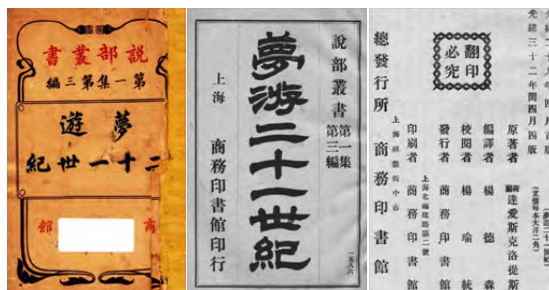 説部叢書
第一集第三編
夢遊
二十一世紀
商
館
說部叢書
第一集
第三編
夢游二十一世紀
上海 商務印書館印行
光緒三十二年閏四月四版
翻印必究
原著者 荷蘭 達愛斯克洛提斯
編譯者 楊德森
校閱者 楊瑜統
發行者 商務印書館
印刷者 商務印書館
總發行所 商務印書館